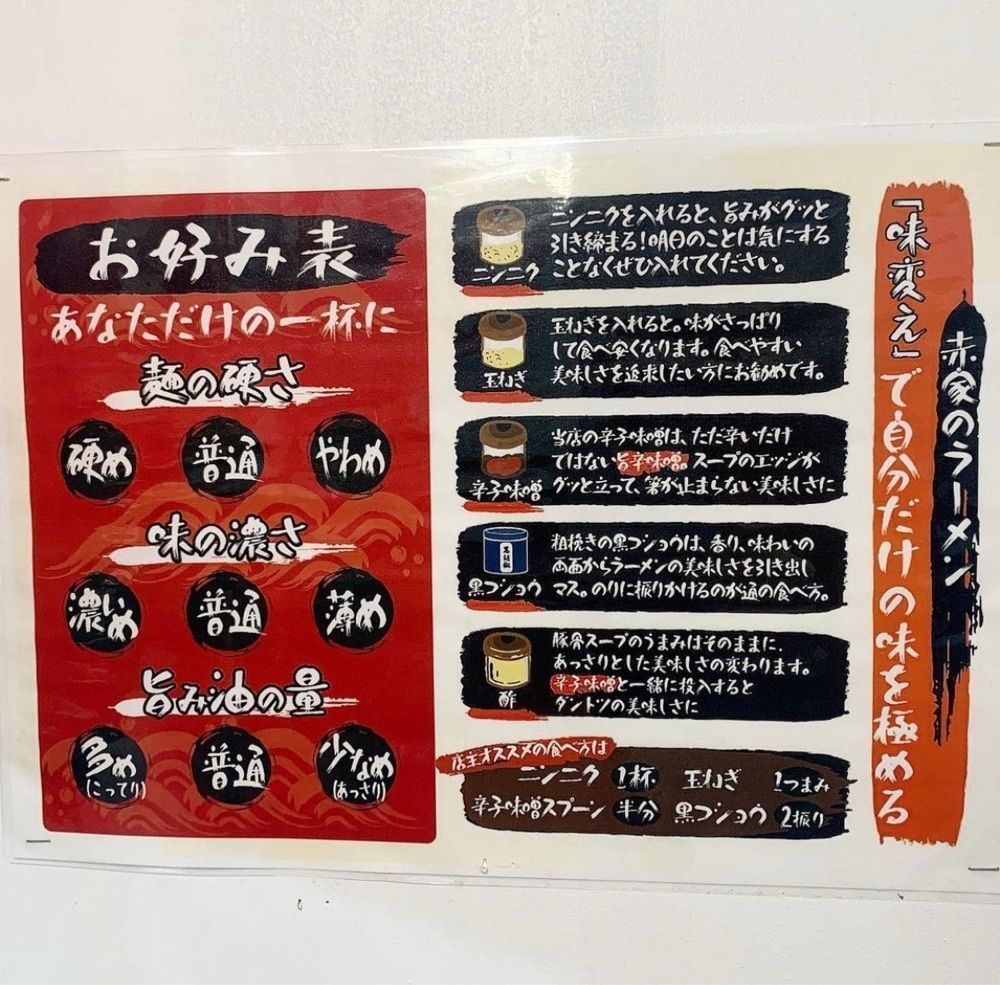 お好み表
あなただけの一杯に
麺の硬さ
硬め 普通 やわめ
味の濃さ
濃いめ 普通 薄め
旨み油の量
多め(こってり) 普通 少なめ(あっさり)
赤家のラーメン
「味変え」で自分だけの味を極める
ニンニク
ニンニクを入れると、旨みがグッと
引き締まる!明日のことは気にする
ことなくぜひ入れてください。
玉ねぎ
玉ねぎを入れると。味がさっぱり
して食べ安くなります。食べやすい
美味しさを追求したい方にお勧めです。
辛子味噌
当店の辛子味噌は、ただ辛いだけ
ではない旨辛味噌。スープのエッジが
グッと立って、箸が止まらない美味しさに
黒胡椒
黒コショウ
粗挽きの黒コショウは、香り、味わいの
両面からラーメンの美味しさを引き出し
マス。のりに振りかけるのが通の食べ方。
酢
豚骨スープのうまみはそのままに、
あっさりとした美味しさの変わります。
辛子味噌と一緒に投入すると
ダントツの美味しさに
店主オススメの食べ方は
ニンニク 1杯 玉ねぎ 1つまみ
辛子味噌スプーン 半分 黒コショウ 2振り